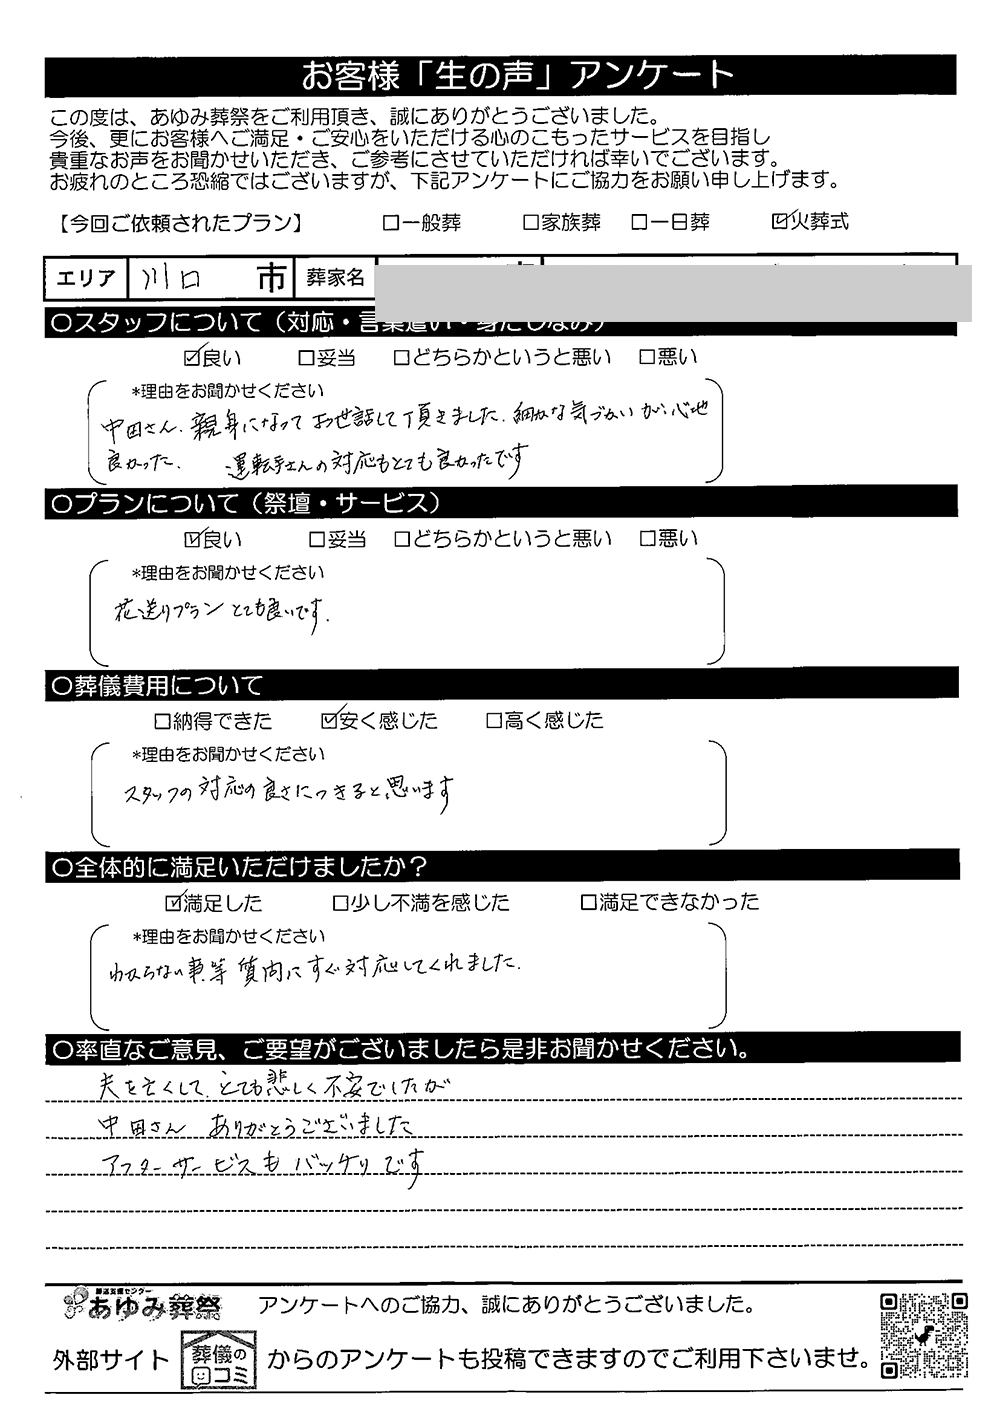 お客様「生の声」アンケート
この度は、あゆみ葬祭をご利用頂き、誠にありがとうございました。
今後、更にお客様へご満足・ご安心をいただける心のこもったサービスを目指し
貴重なお声をお聞かせいただき、ご参考にさせていただければ幸いでございます。
お疲れのところ恐縮ではございますが、下記アンケートにご協力をお願い申し上げます。
【今回ご依頼されたプラン】 □一般葬 □家族葬 □一日葬 ☑火葬式
エリア 川口 市 葬家名
〇スタッフについて（対応・言葉遣い・身だしなみ）
☑良い □妥当 □どちらかというと悪い □悪い
*理由をお聞かせください
中田さん、親身になってお世話して頂きました。細かな気づかいが、心地
良かった。 運転手さんの対応もとても良かったです
〇プランについて（祭壇・サービス）
☑良い □妥当 □どちらかというと悪い □悪い
*理由をお聞かせください
花送りプランとても良いです。
〇葬儀費用について
□納得できた ☑安く感じた □高く感じた
*理由をお聞かせください
スタッフの対応の良さにつきると思います
〇全体的に満足いただけましたか？
☑満足した □少し不満を感じた □満足できなかった
*理由をお聞かせください
わからない事等質問にすぐ対応してくれました。
〇率直なご意見、ご要望がございましたら是非お聞かせください。
夫を亡くして、とても悲しく不安でしたが
中田さん ありがとうございました
アフターサービスもバッチリです
葬送支援センター
あゆみ葬祭 アンケートへのご協力、誠にありがとうございました。
外部サイト 葬儀の口コミ からのアンケートも投稿できますのでご利用下さいませ。